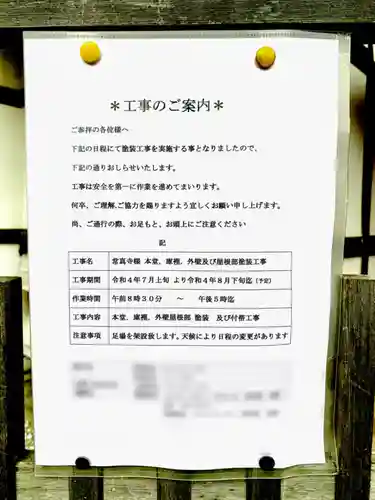 ＊工事のご案内＊
ご参拝の各位様へ
下記の日程にて塗装工事を実施する事となりましたので、
下記の通りおしらせいたします。
工事は安全を第一に作業を進めてまいります。
何卒、ご理解､ご協力を賜りますよう宜しくお願い申し上げます。
尚、ご通行の際、お足もと、お頭上にご注意ください
記
工事名 常真寺様 本堂、庫裡、外壁及び屋根部塗装工事
工事期間 令和４年７月上旬 より令和４年８月下旬迄（予定）
作業時間 午前８時３０分 ～ 午後５時迄
工事内容 本堂、庫裡、外壁屋根部 塗装 及び付帯工事
注意事項 足場を架設致します。天候により日程の変更があります